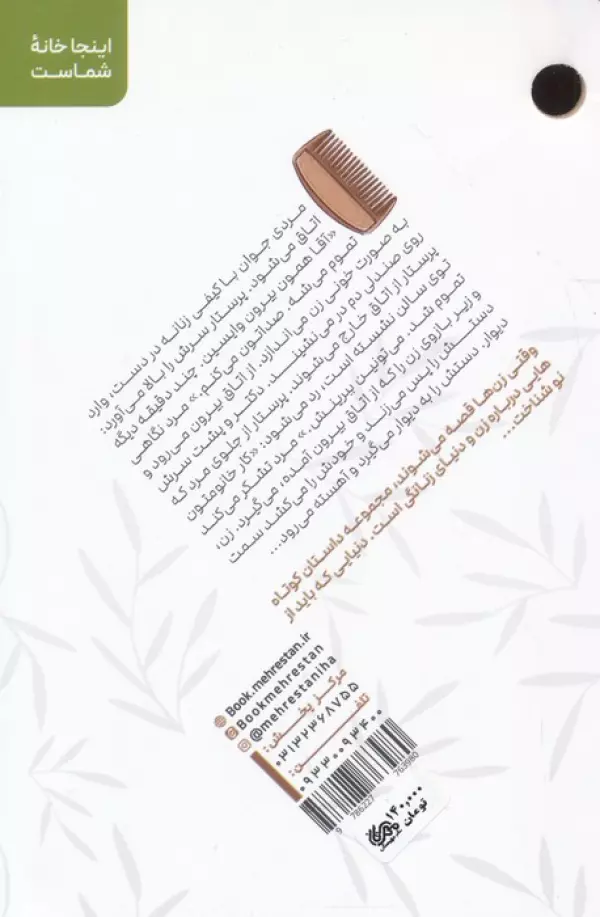 اینجا خانهٔ
شماست
مردی جوان با کیفی زنانه در دست، وارد
اتاق می‌شود. پرستار سرش را بالا می‌آورد:
«آقا همون بیرون وایسین، چند دقیقه دیگه
تموم می‌شه. صداتون می‌کنم.» مرد نگاهی
به صورت خونی زن می‌اندازد. از اتاق بیرون می‌رود و
روی صندلی دم در می‌نشیند. دکتر و پشت سرش
پرستار از اتاق خارج می‌شوند. پرستار از جلوی مرد که
توی سالن نشسته است، رد می‌شود: «کار خانومتون
تموم شد. می‌تونین ببرینش.» مرد تشکر می‌کند
و زیر بازوی زن را که از اتاق بیرون آمده، می‌گیرد. زن،
دستش را پس می‌زند و خودش را می‌کشد سمت
دیوار. دستش را به دیوار می‌گیرد و آهسته می‌رود...
وقتی زن‌ها قصه می‌شوند، مجموعه داستان کوتاه
هایی درباره زن و دنیای زنانگی است. دنیایی که باید از
نو شناخت...
Book.mehrestan.ir
Bookmehrestan
@mehrestaniha
مرکز پخش:
۰۳۱۳۲۳۶۸۷۵۵
تلفن:
۰۹۳۳۰۰۹۳۴۰۰
9 786227 763980
۱۴۰,۰۰۰
تومان